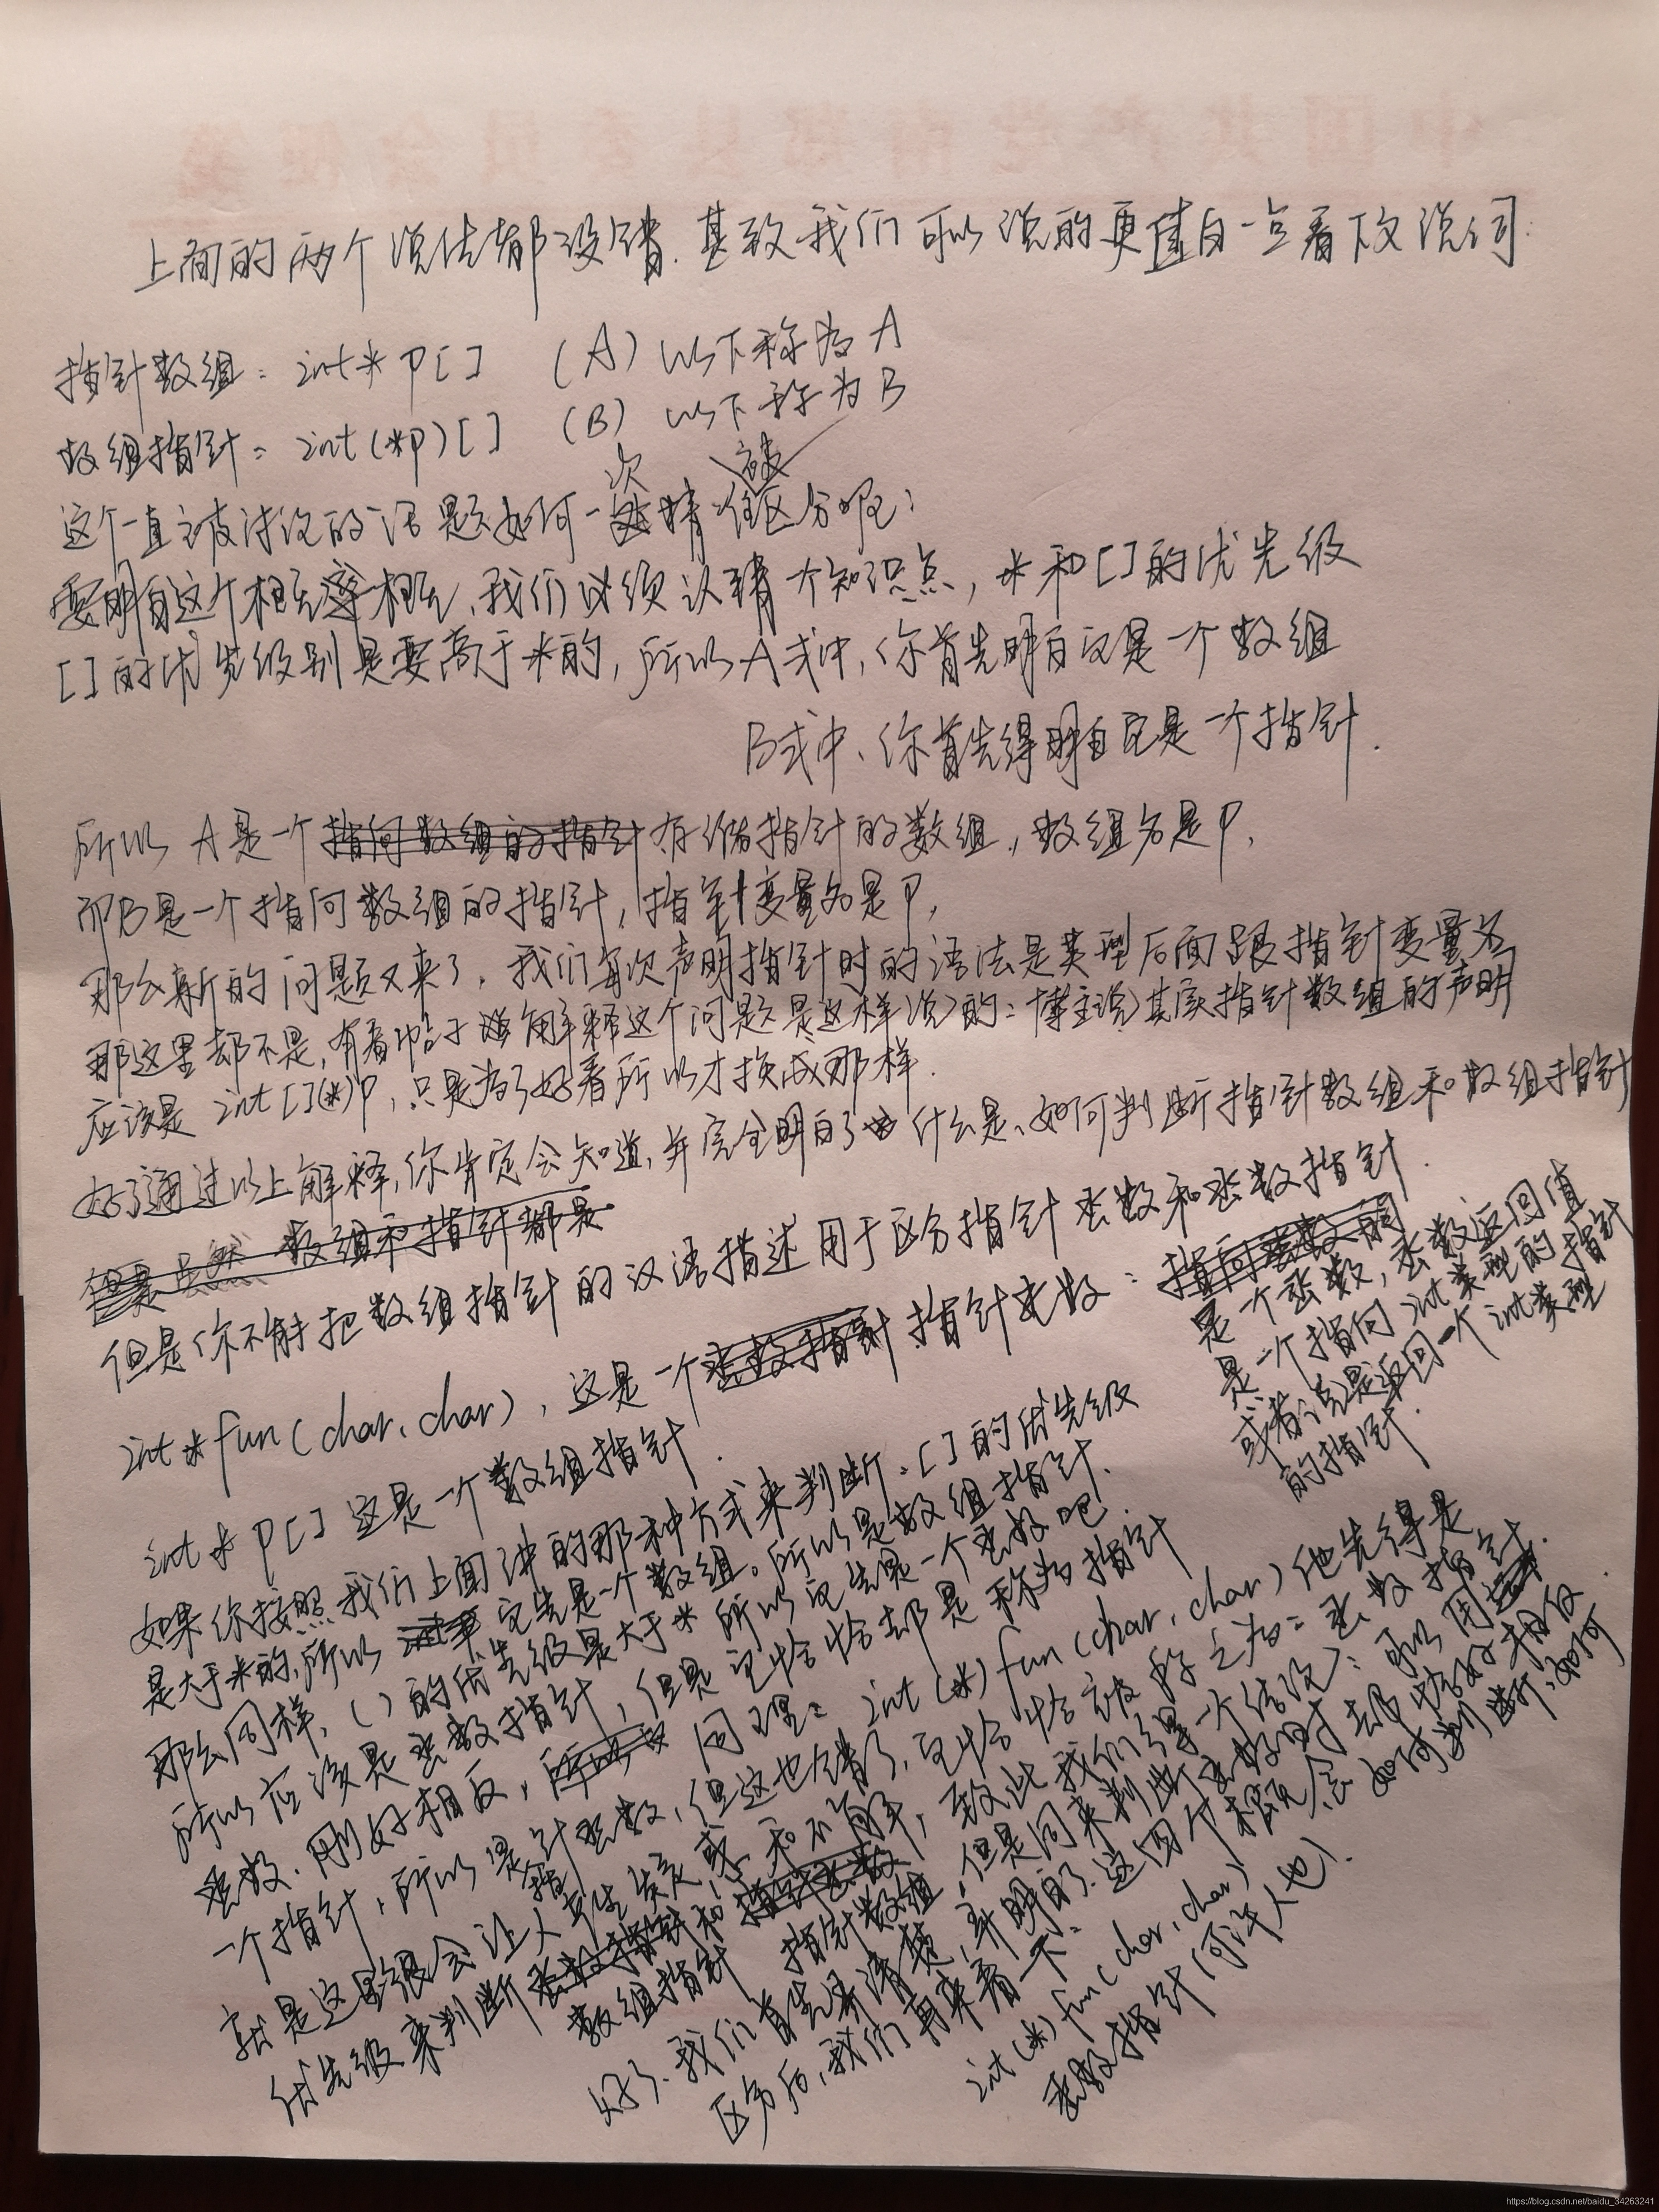 上面的两个说法都没错.甚致我们可以说的更直白一点看下文说词:
指针数组: int* p[] (A) 以下称为A
数组指针: int(*p)[] (B) 以下称为B
这个一直被讨论的话题如何一次精准区分呢:
要明白这个相互 相互、我们必须认清一个知识点, *和[]的优先级
[]的优先级别是要高于*的, 所以A式中, 你首先明白这是一个数组
B式中、你首先得明白它是一个指针.
所以 A是一个 存储指针的数组, 数组名是P,
而B是一个指向数组的指针, 指针变量名是P,
那么新的问题又来了, 我们每次声明指针时的语法是类型后面跟指针变量名
那这里却不是, 有看帖子 解释这个问题是这样说的: 博主说其实指针数组的声明
应该是 int[](*)p, 只是为了好看所以才换成那样.
好了通过以上解释, 你肯定会知道, 并完全明白了 什么是、如何判断指针数组和数组指针
但是 虽然 数组和指针都是
但是你不能把数组指针的汉语描述用于区分指针函数和函数指针.
int*fun(char,char), 这是一个 指针函数:
是一个函数, 函数返回值
是一个指向int类型的指针
或者说是返回一个int类型
的指针.
int* p[] 这是一个数组指针.
如果你按照我们上面讲的那种方式来判断: []的优先级
是大于*的, 所以 它先是一个数组。所以是数组指针.
那么同样, ()的优先级是大于* 所以它先是一个函数吧.
所以应该是函数指针, 但是它恰恰却是称为指针
函数. 刚好相反, 同理: int(*)fun(char,char)他先得是
一个指针, 所以是指针函数, 但这也错了, 它恰恰被称之为: 函数指针.
就是这里很会让人产生 惑和不解, 致此我们得一个结论: 可以用
优先级来判断 数组指针 和 指针数组, 但是同来判断函数时却恰好相反.
好了. 我们首先弄清楚, 并明白了. 这四个概念如何判断, 如何
区分后, 我们再来看一下:
int(*)fun(char,char)
函数指针(何许人也).
https://blog.csdn.net/baidu_34263241